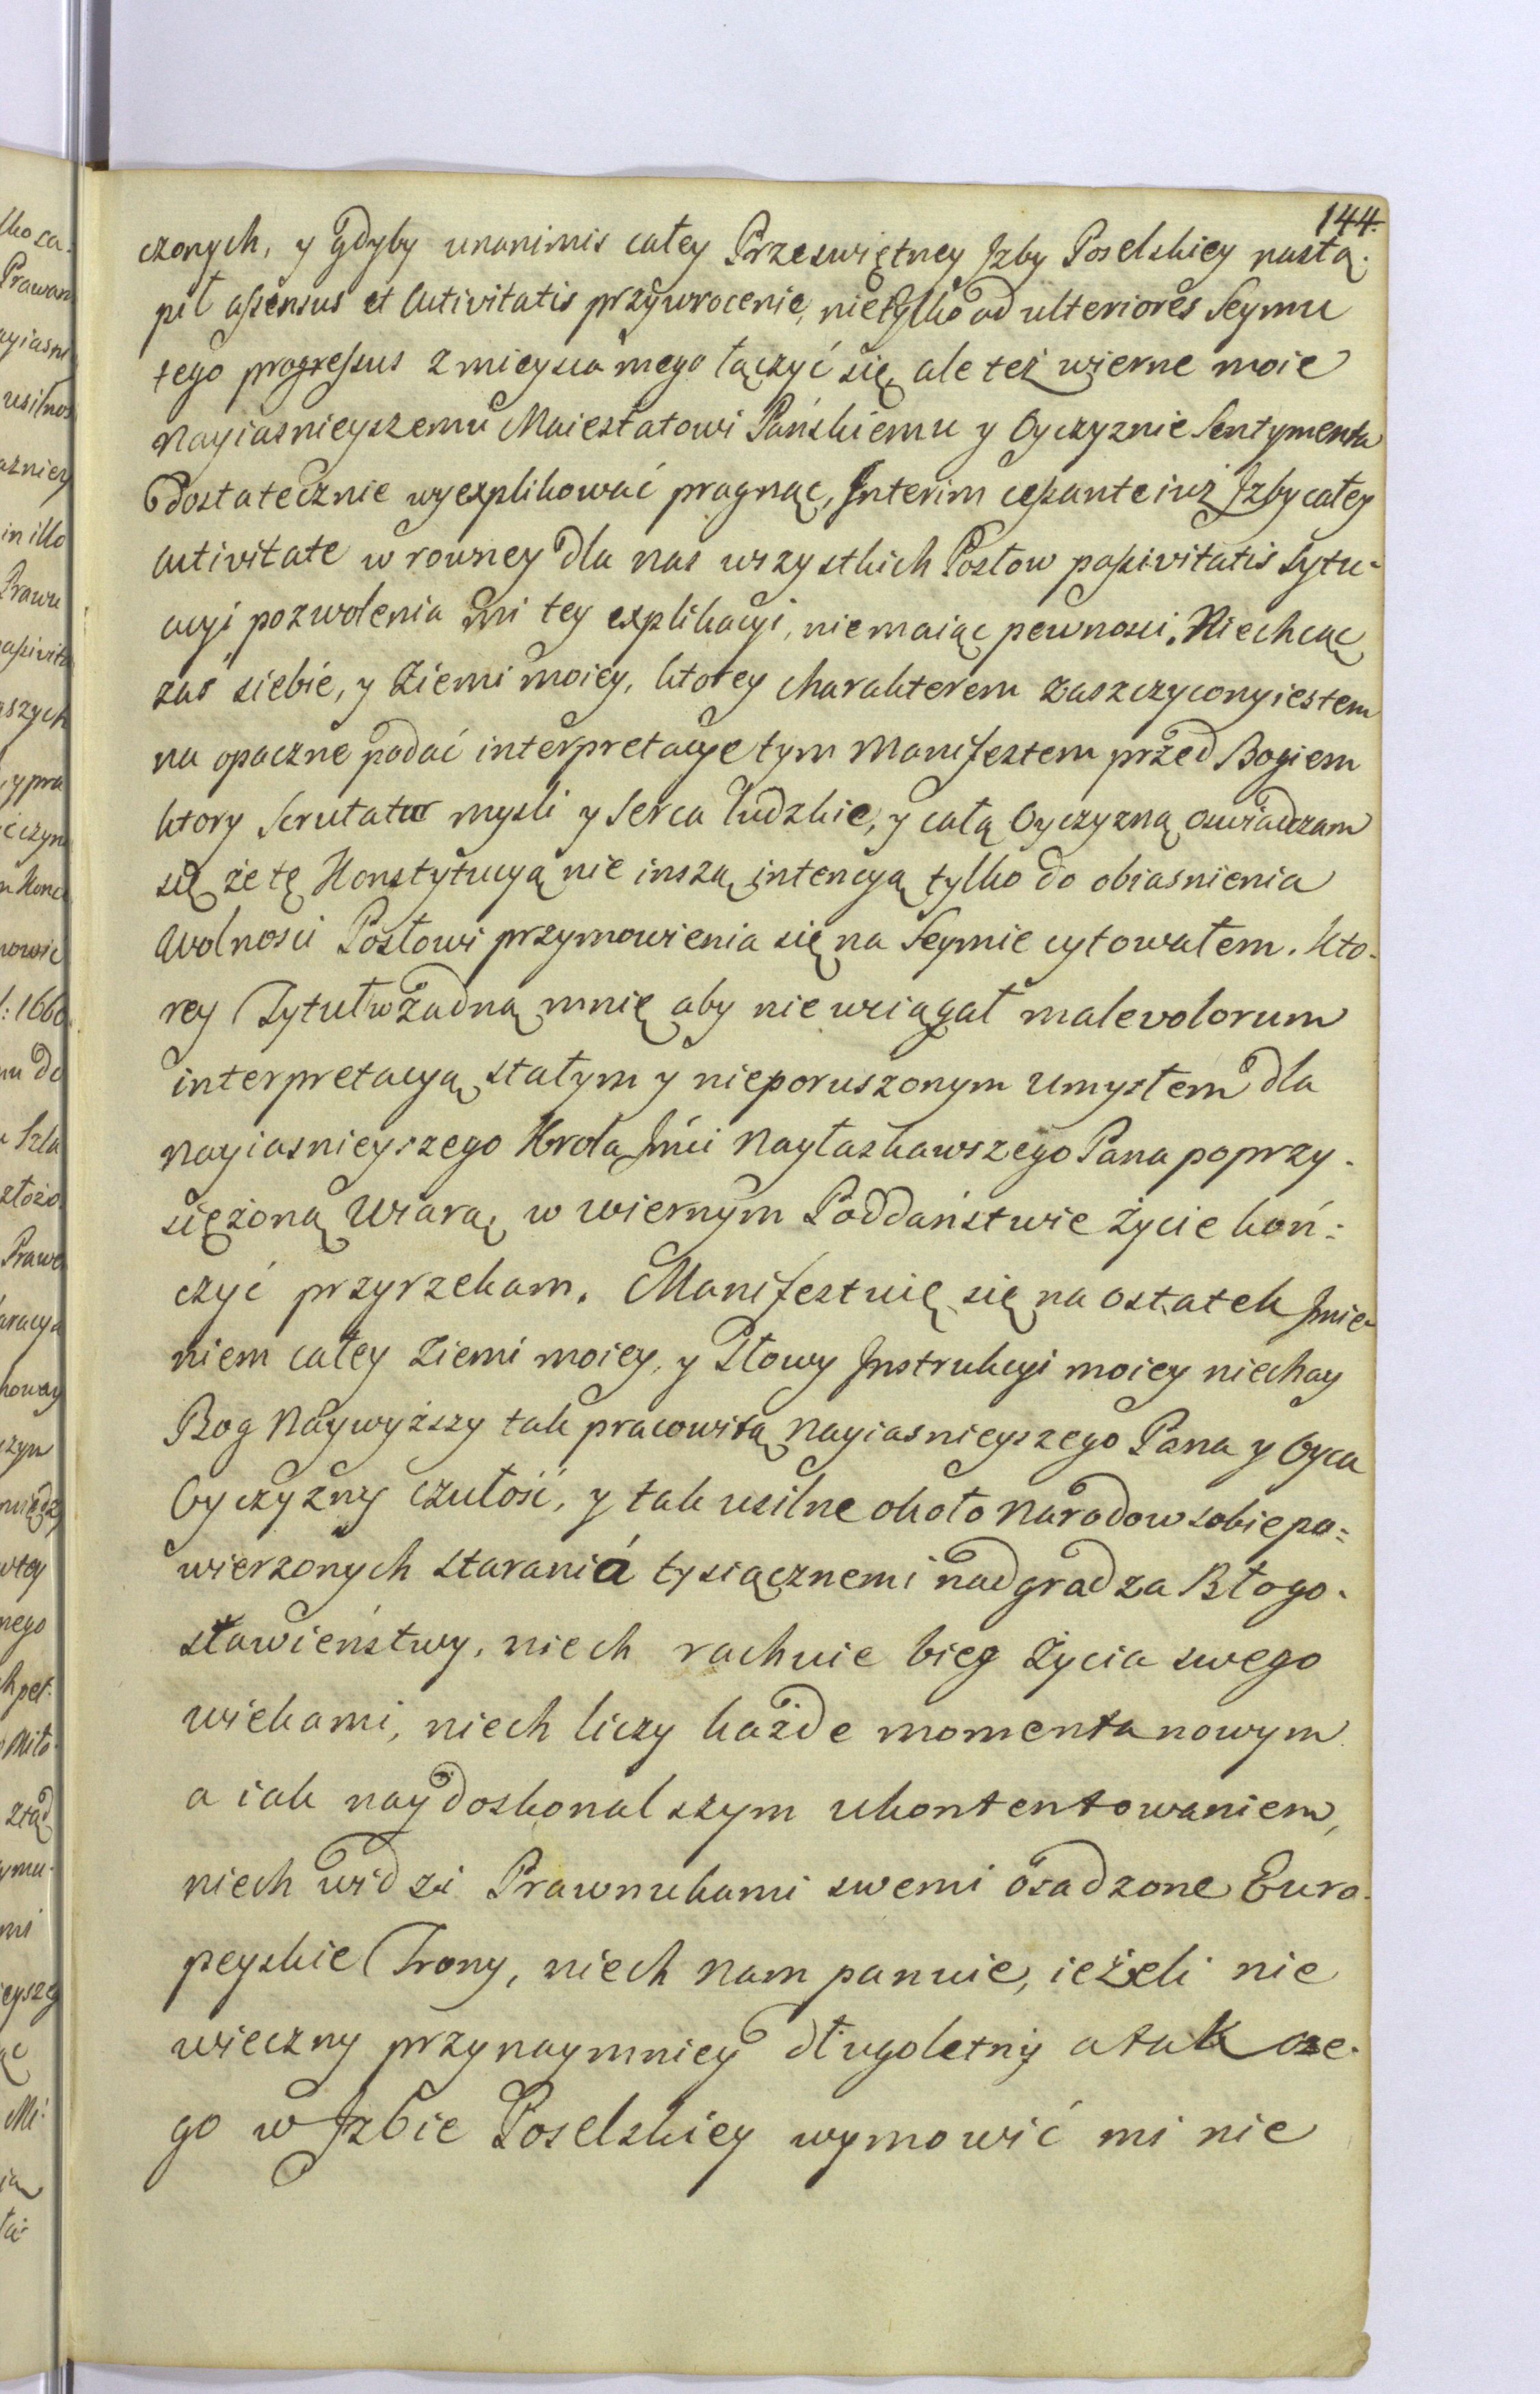 144.
czonych, y gdyby unanimis całey Przeswiętney Jzby Poselskiey nastą-
pił assensus et Activitatis przywrocenie, nietylko ad ulteriores Seymu
tego progressus z mieysca mego łączyć się, ale też wierne moie
Nayiasnieyszemu Maiestatowi Pańskiemu y Oyczyznie Sentymenta
dostatecznie wyexplikować pragnąc, Jnterim cessante iuż Jzby całey
Activitate w rowney dla nas wszystkich Posłow passivitatis Sytu-
acyi pozwolenia mi tey explikacyi, niemaiąc pewnosci. Niechcąc
zaś siebie, y Ziemi moiey, ktorey charakterem zaszczyconyiestem
na opaczne podać interpretacye tym Manifestem przed Bogiem
ktory Scrutatur mysli y Serca ludzkie, y całą Oyczyzną oswiadczam
się że tę Konstytucyą nie inszą intencyą tylko do obiasnienia
Wolnosci Posłowi przymowienia się na Seymie cytowałem. Kto-
rey Tytuł w żadną mnię aby nie wciągał malevolorum
interpretacyą, stałym y nieporuszonym Umysłem dla
Nayiasnieyszego Krola Jmci Nayłaskawszego Pana poprzy-
siężoną Wiarą w wiernym Poddaństwie życie koń-
czyć przyrzekam. Manifestuię się na ostatek Jmie-
niem całey Ziemi moiey, y Słowy Jnstrukcyi moiey niechay
Bog Naywyższy tak pracowitą Nayiasnieyszego Pana y Oyca
Oyczyzny czułość, y tak usilne około Narodow sobie po-
wierzonych starania tysiącznemi nadgradza Błogo-
sławieństwy, niech rachuie bieg Życia swego
wiekami, niech liczy każde momenta nowym
a iak naydoskonalszym ukontentowaniem,
niech widzi Prawnukami swemi osadzone Euro-
peyskie Trony, niech nam panuie, ieżeli nie
wieczny przynaymniey długoletny a tak cze-
go w Jzbie Poselskiey wymowić mi nie